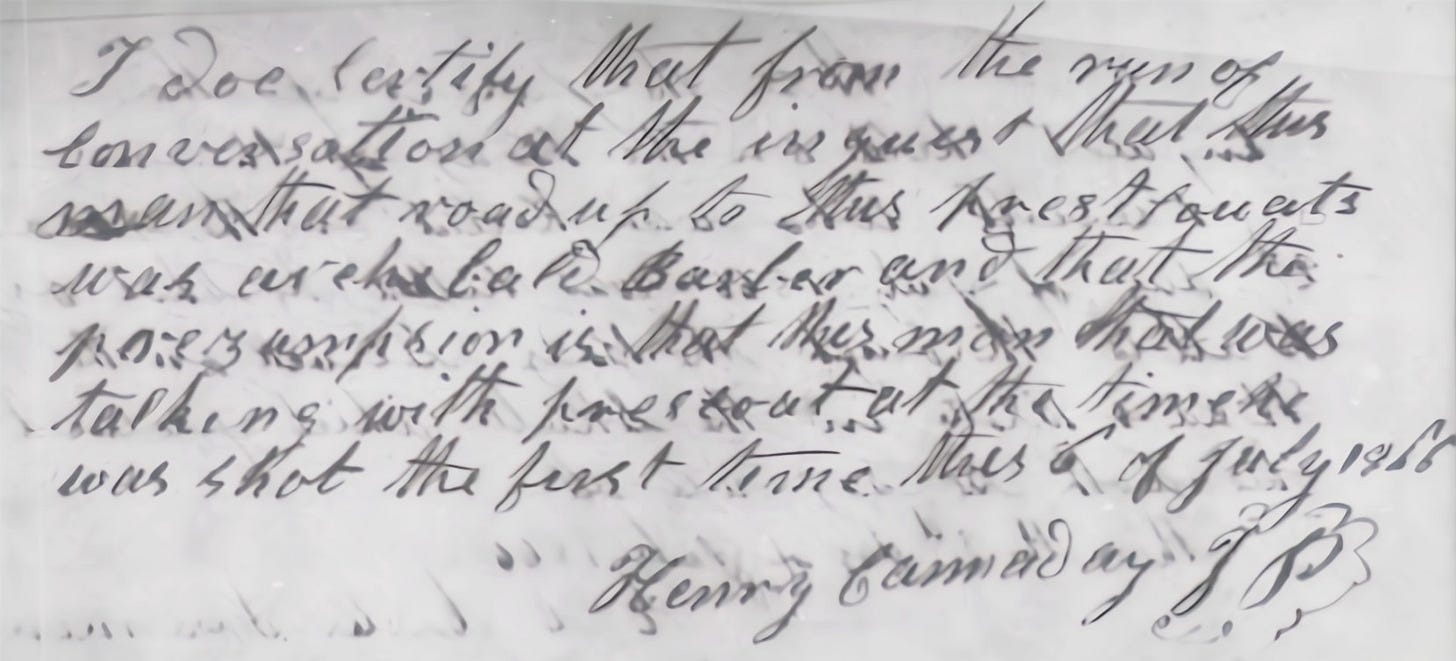 I Doe Certify that from the run of
Conversation at the inquest that this
man that road up to this prestouats
was archabald Barber and that the
presumpsion is that this man that was
talking with prescoat at the time he
was shot the first time this 6 of July 1866
Henry Cannaday J P